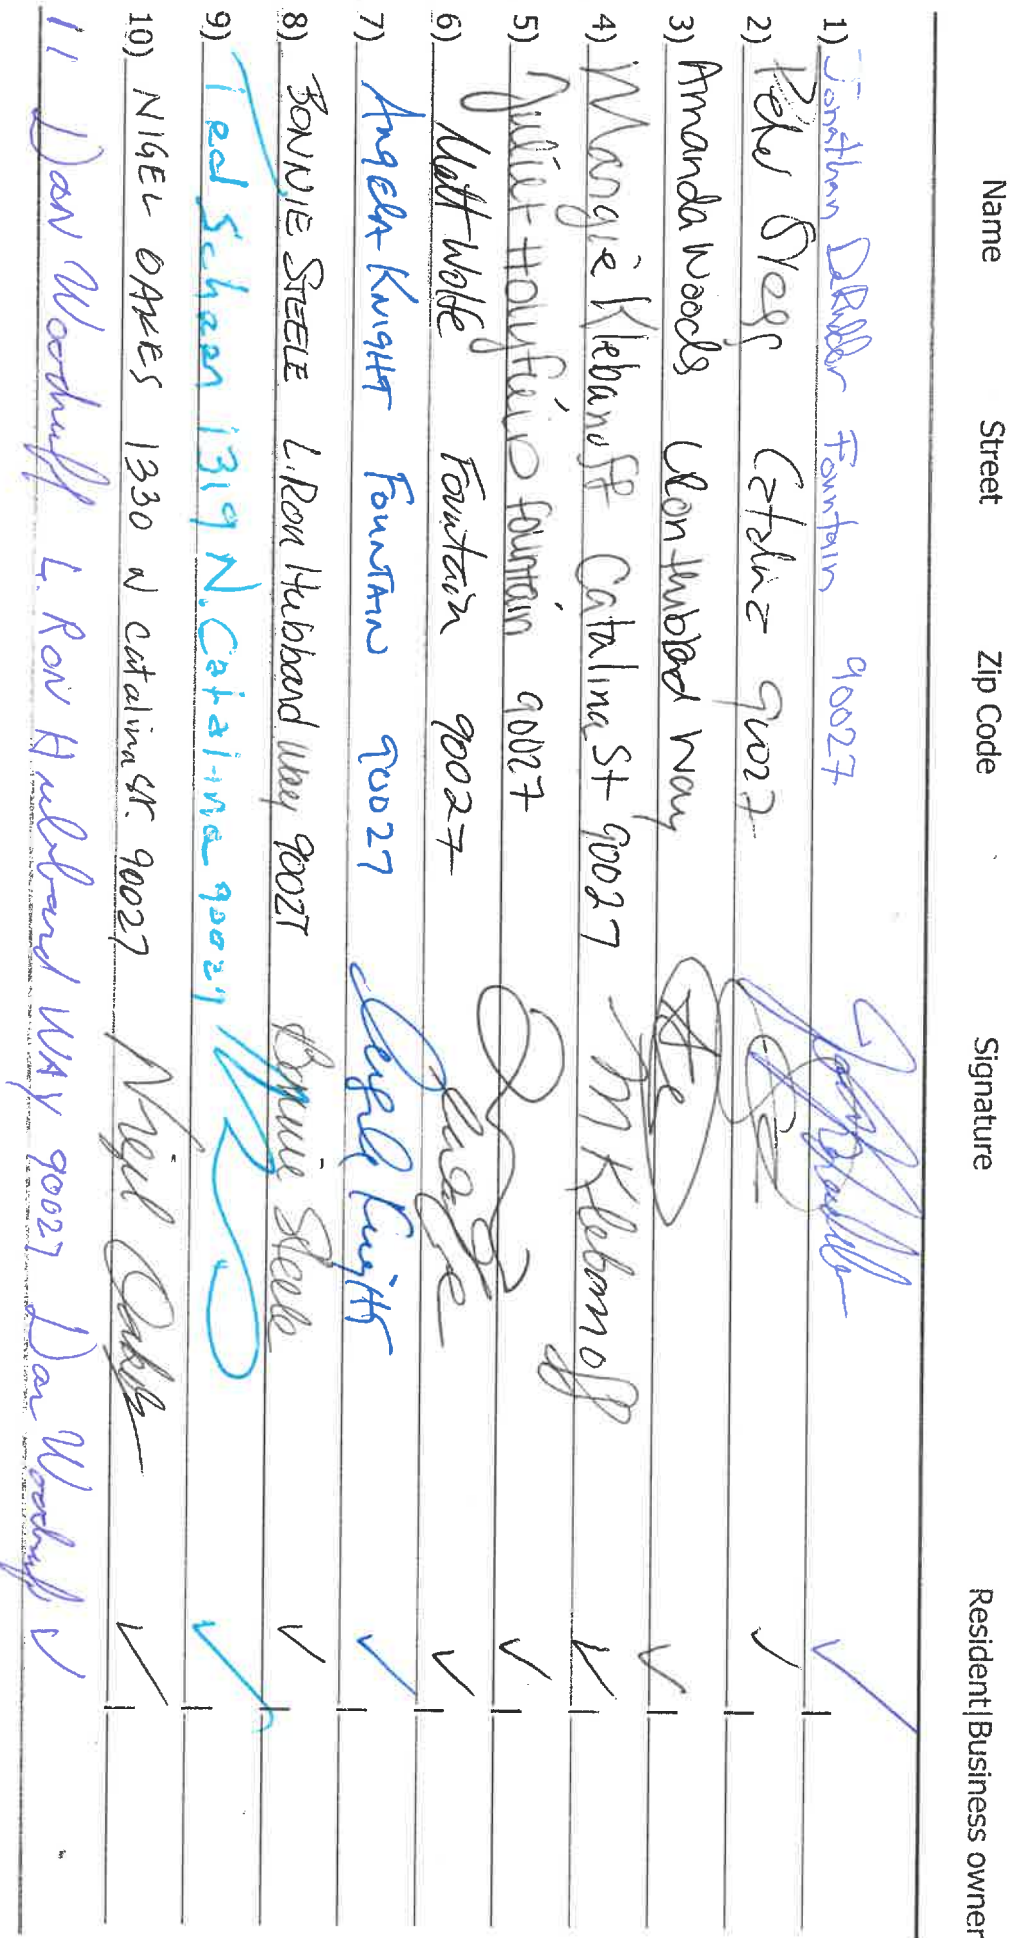 Name Street Zip Code Signature Resident|Business owner
1) Jonathan DeRudder Fountain 90027
2) Peter Catalina 90027
3) Amanda Woods LRon Hubbard Way
4) Margie Klebanoff Catalina St 90027 M Klebanoff
5) Juliet Holyfield fountain 90027
6) Matt Wolfe Fountain 90027
7) Angela Knight Fountain 90027 Angela Knight
8) BONNIE STEELE L.Ron Hubbard Way 90027 Bonnie Steele
9) Ted Schaen 1319 N. Catalina 90027
10) NIGEL OAKES 1330 N catalina St. 90027 Nigel Oakes
11 Dan Woodruff L. RON Hubbard WAY 90027 Dan Woodruff